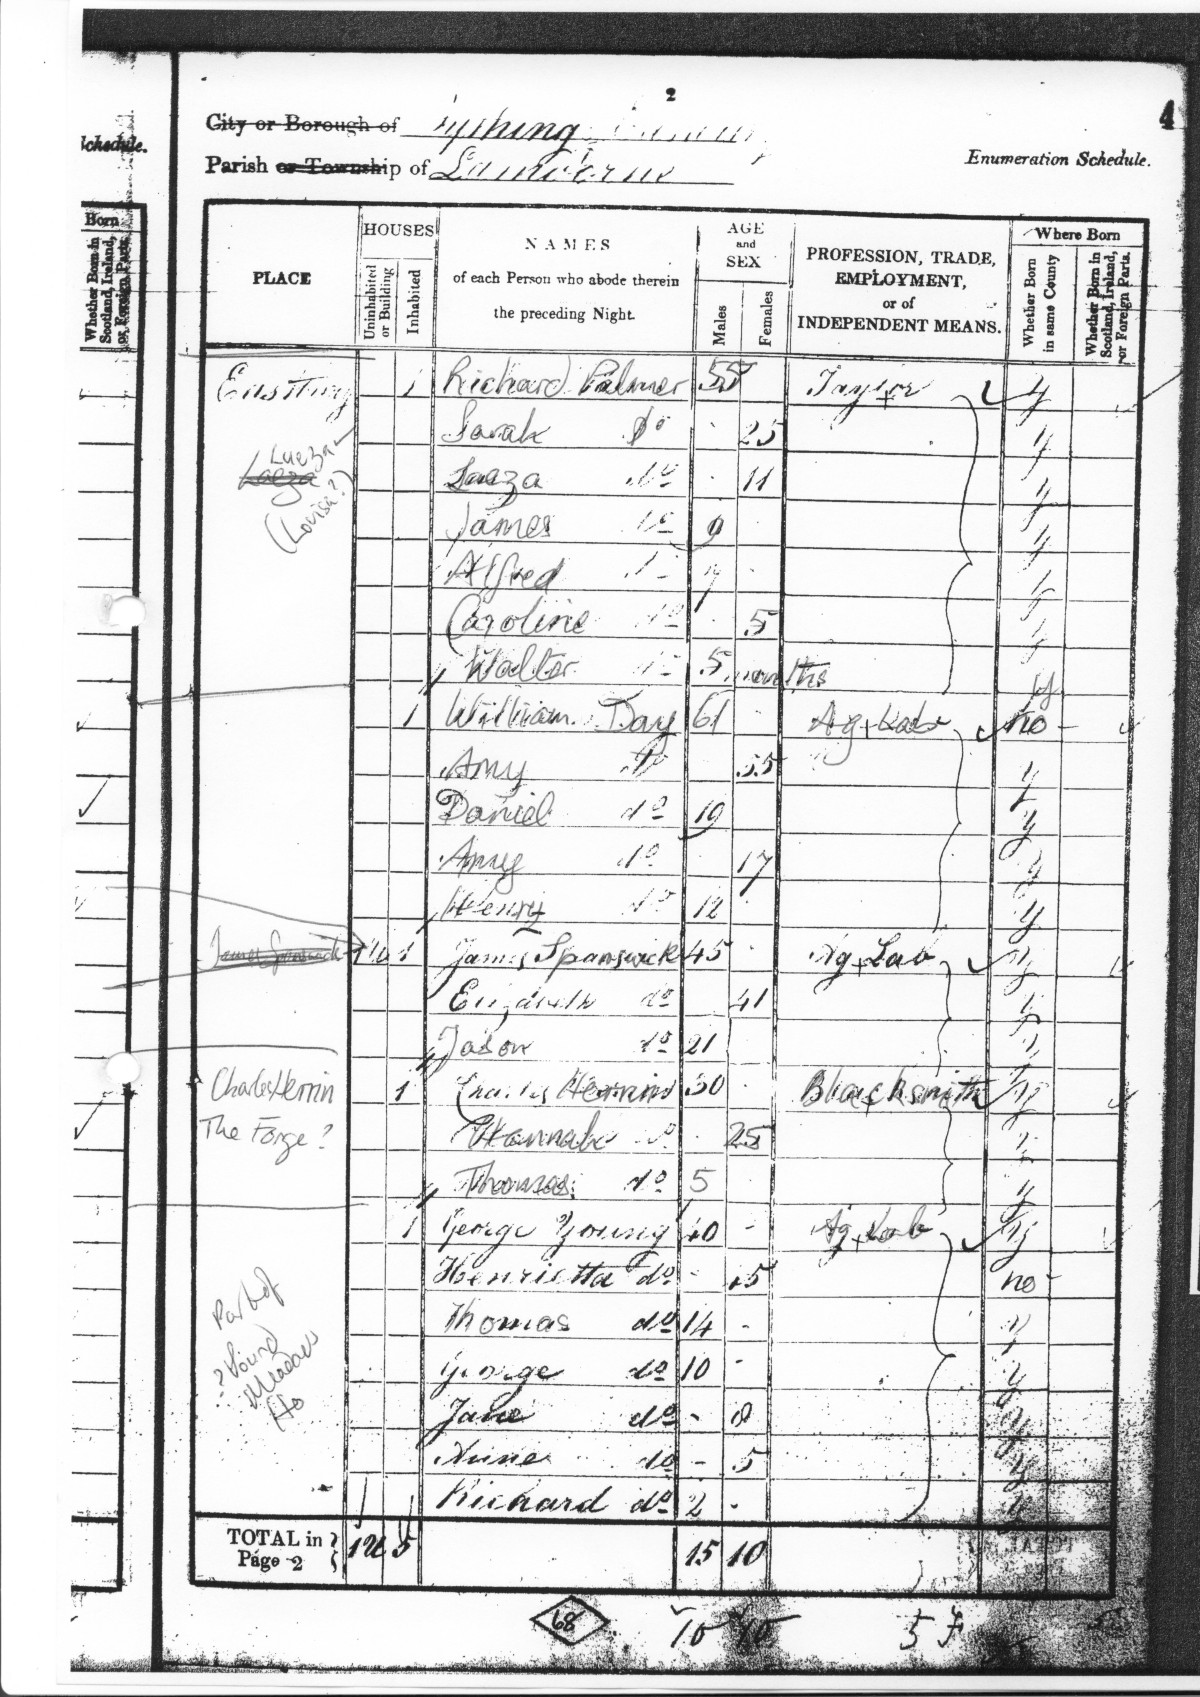 2
4
City or Borough of Tything
Parish or Township of
Enumeration Schedule.
Schedule.
Born
Whether Born in Scotland, Ireland, or Foreign Parts.
PLACE
HOUSES
Uninhabited or Building
Inhabited
NAMES
of each Person who abode therein
the preceding Night.
AGE
and
SEX
Males
Females
PROFESSION, TRADE,
EMPLOYMENT,
or of
INDEPENDENT MEANS.
Where Born
Whether Born in same County
Whether Born in Scotland, Ireland, or Foreign Parts.
Eastbury 1 Richard Palmer 55 Taylor y
Sarah Do 25 y
Lueza
Laeza
(Lovisa?)
Laeza do 11 y
James do 9 y
Alfred 7 y
Caroline do 5 y
Walter do 5 months y
1 William Day 61 Ag Lab no
Amy Do 55 y
Daniel do 19 y
Amy do 17 y
Henry do 12 y
James Spanswick 1U 1 James Spanswick 45 Ag Lab y
Elizabeth do 41 y
Jason do 21 y
Charles Herrin 1 Charles Herrin 30 Blacksmith y
The Forge?
Hannah do 25 y
Thomas do 5 y
1 George Young 40 Ag Lab y
Henrietta do no
Part of
? Young
Meadows
Ho
Thomas do 14 y
George do 10 y
Jane do - 8 y
Anne do - 5 y
Richard do 2 - y
TOTAL in Page 2 1U 5 15 10
68
10 15 5 F